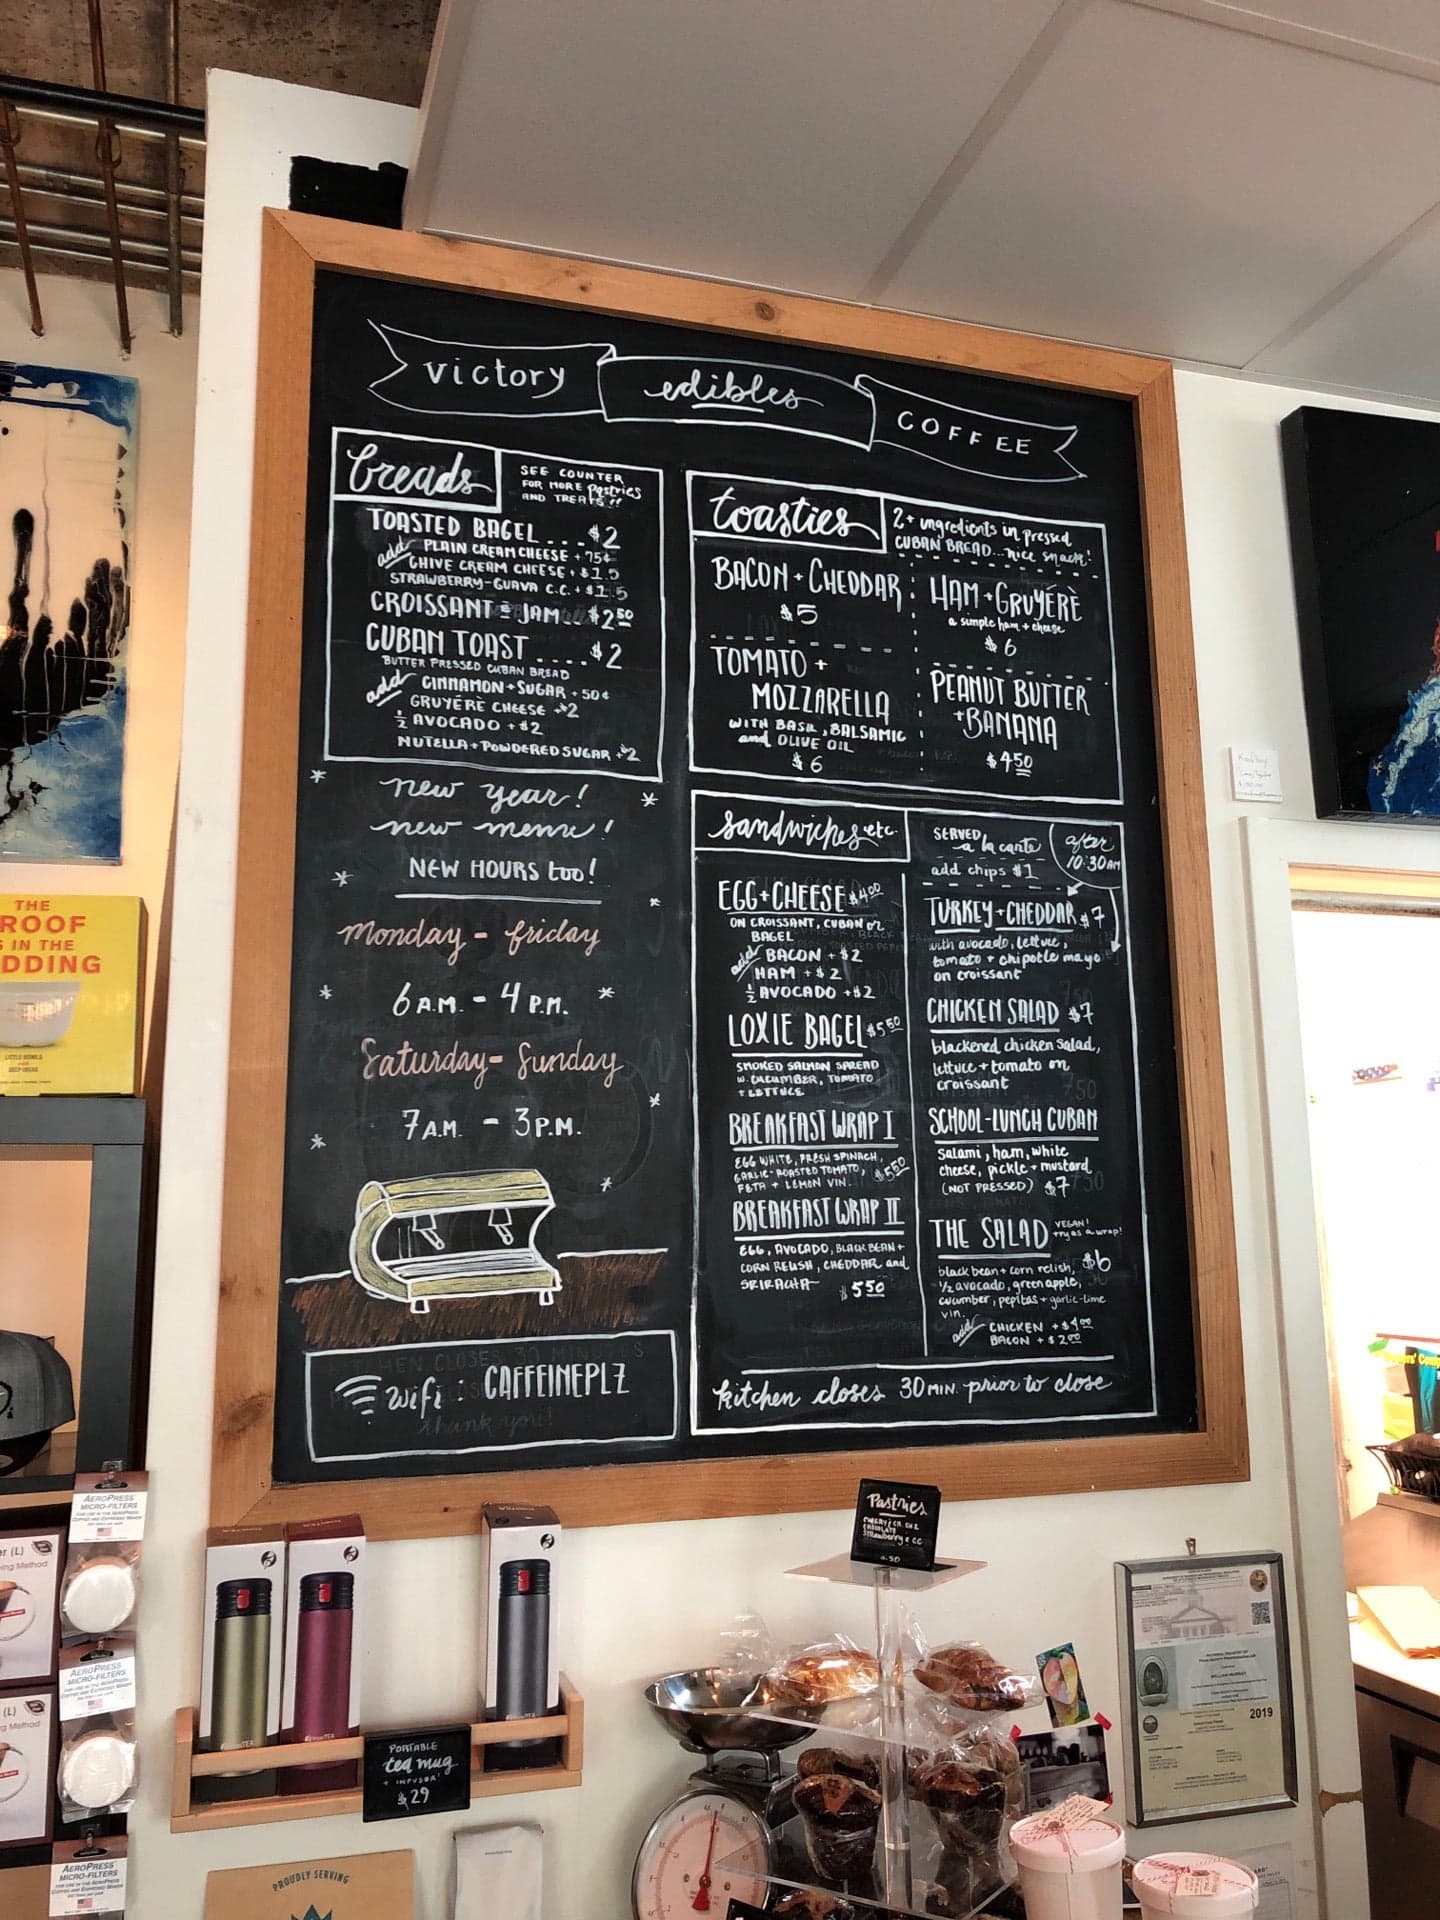 victory edibles COFFEE
breads
SEE COUNTER
FOR MORE Pastries
AND TREATS!!
TOASTED BAGEL ... $2
add PLAIN CREAM CHEESE + 75¢
CHIVE CREAM CHEESE + $1.5
STRAWBERRY-GUAVA C.C. + $1.5
CROISSANT & JAM .. $2.50
CUBAN TOAST .... $2
BUTTER PRESSED CUBAN BREAD
add CINNAMON + SUGAR + 50¢
GRUYÈRE CHEESE + $2
1/2 AVOCADO + $2
NUTELLA + POWDERED SUGAR + $2
new year!
new menu!
NEW HOURS too!
Monday - friday
6 A.M. - 4 P.M.
Saturday - Sunday
7 A.M. - 3 P.M.
KITCHEN CLOSES 30 MINUTES
wifi : CAFFEINEPLZ
thank you!
toasties
2+ ingredients in pressed
CUBAN BREAD...nice snack!
BACON + CHEDDAR
$5
HAM + GRUYÉRÈ
a simple ham + cheese
$6
TOMATO +
MOZZARELLA
WITH BASIL, BALSAMIC
and OLIVE OIL
$6
PEANUT BUTTER
+ BANANA
$4.50
sandwiches etc.
SERVED
a la carte
add chips $1
after
10:30AM
EGG + CHEESE $4.00
ON CROISSANT, CUBAN or
BAGEL
add BACON + $2
HAM + $2
1/2 AVOCADO + $2
LOXIE BAGEL $5.50
SMOKED SALMON SPREAD
W. CUCUMBER, TOMATO
+ LETTUCE
BREAKFAST WRAP I
EGG WHITE, FRESH SPINACH,
GARLIC-ROASTED TOMATO,
FETA + LEMON VIN. $5.50
BREAKFAST WRAP II
EGG, AVOCADO, BLACK BEAN +
CORN RELISH, CHEDDAR and
SRIRACHA $5.50
TURKEY + CHEDDAR $7
with avocado, lettuce,
tomato + chipotle mayo
on croissant
CHICKEN SALAD $7
blackened chicken salad,
lettuce + tomato on
croissant
SCHOOL-LUNCH CUBAN
salami, ham, white
cheese, pickle + mustard
(NOT PRESSED) $7
THE SALAD VEGAN!
try as a wrap!
black bean + corn relish, $6
1/2 avocado, green apple,
cucumber, pepitas + garlic-lime
vin.
add CHICKEN + $4.00
BACON + $2.00
kitchen closes 30 MIN. prior to close
THE
ROOF
IN THE
DDING
AEROPRESS
MICRO-FILTERS
AEROPRESS
MICRO-FILTERS
AEROPRESS
MICRO-FILTERS
PORTABLE
tea mug
+ INFUSER!
$29
Pastries
CHOCOLATE
PROUDLY SERVING
2019